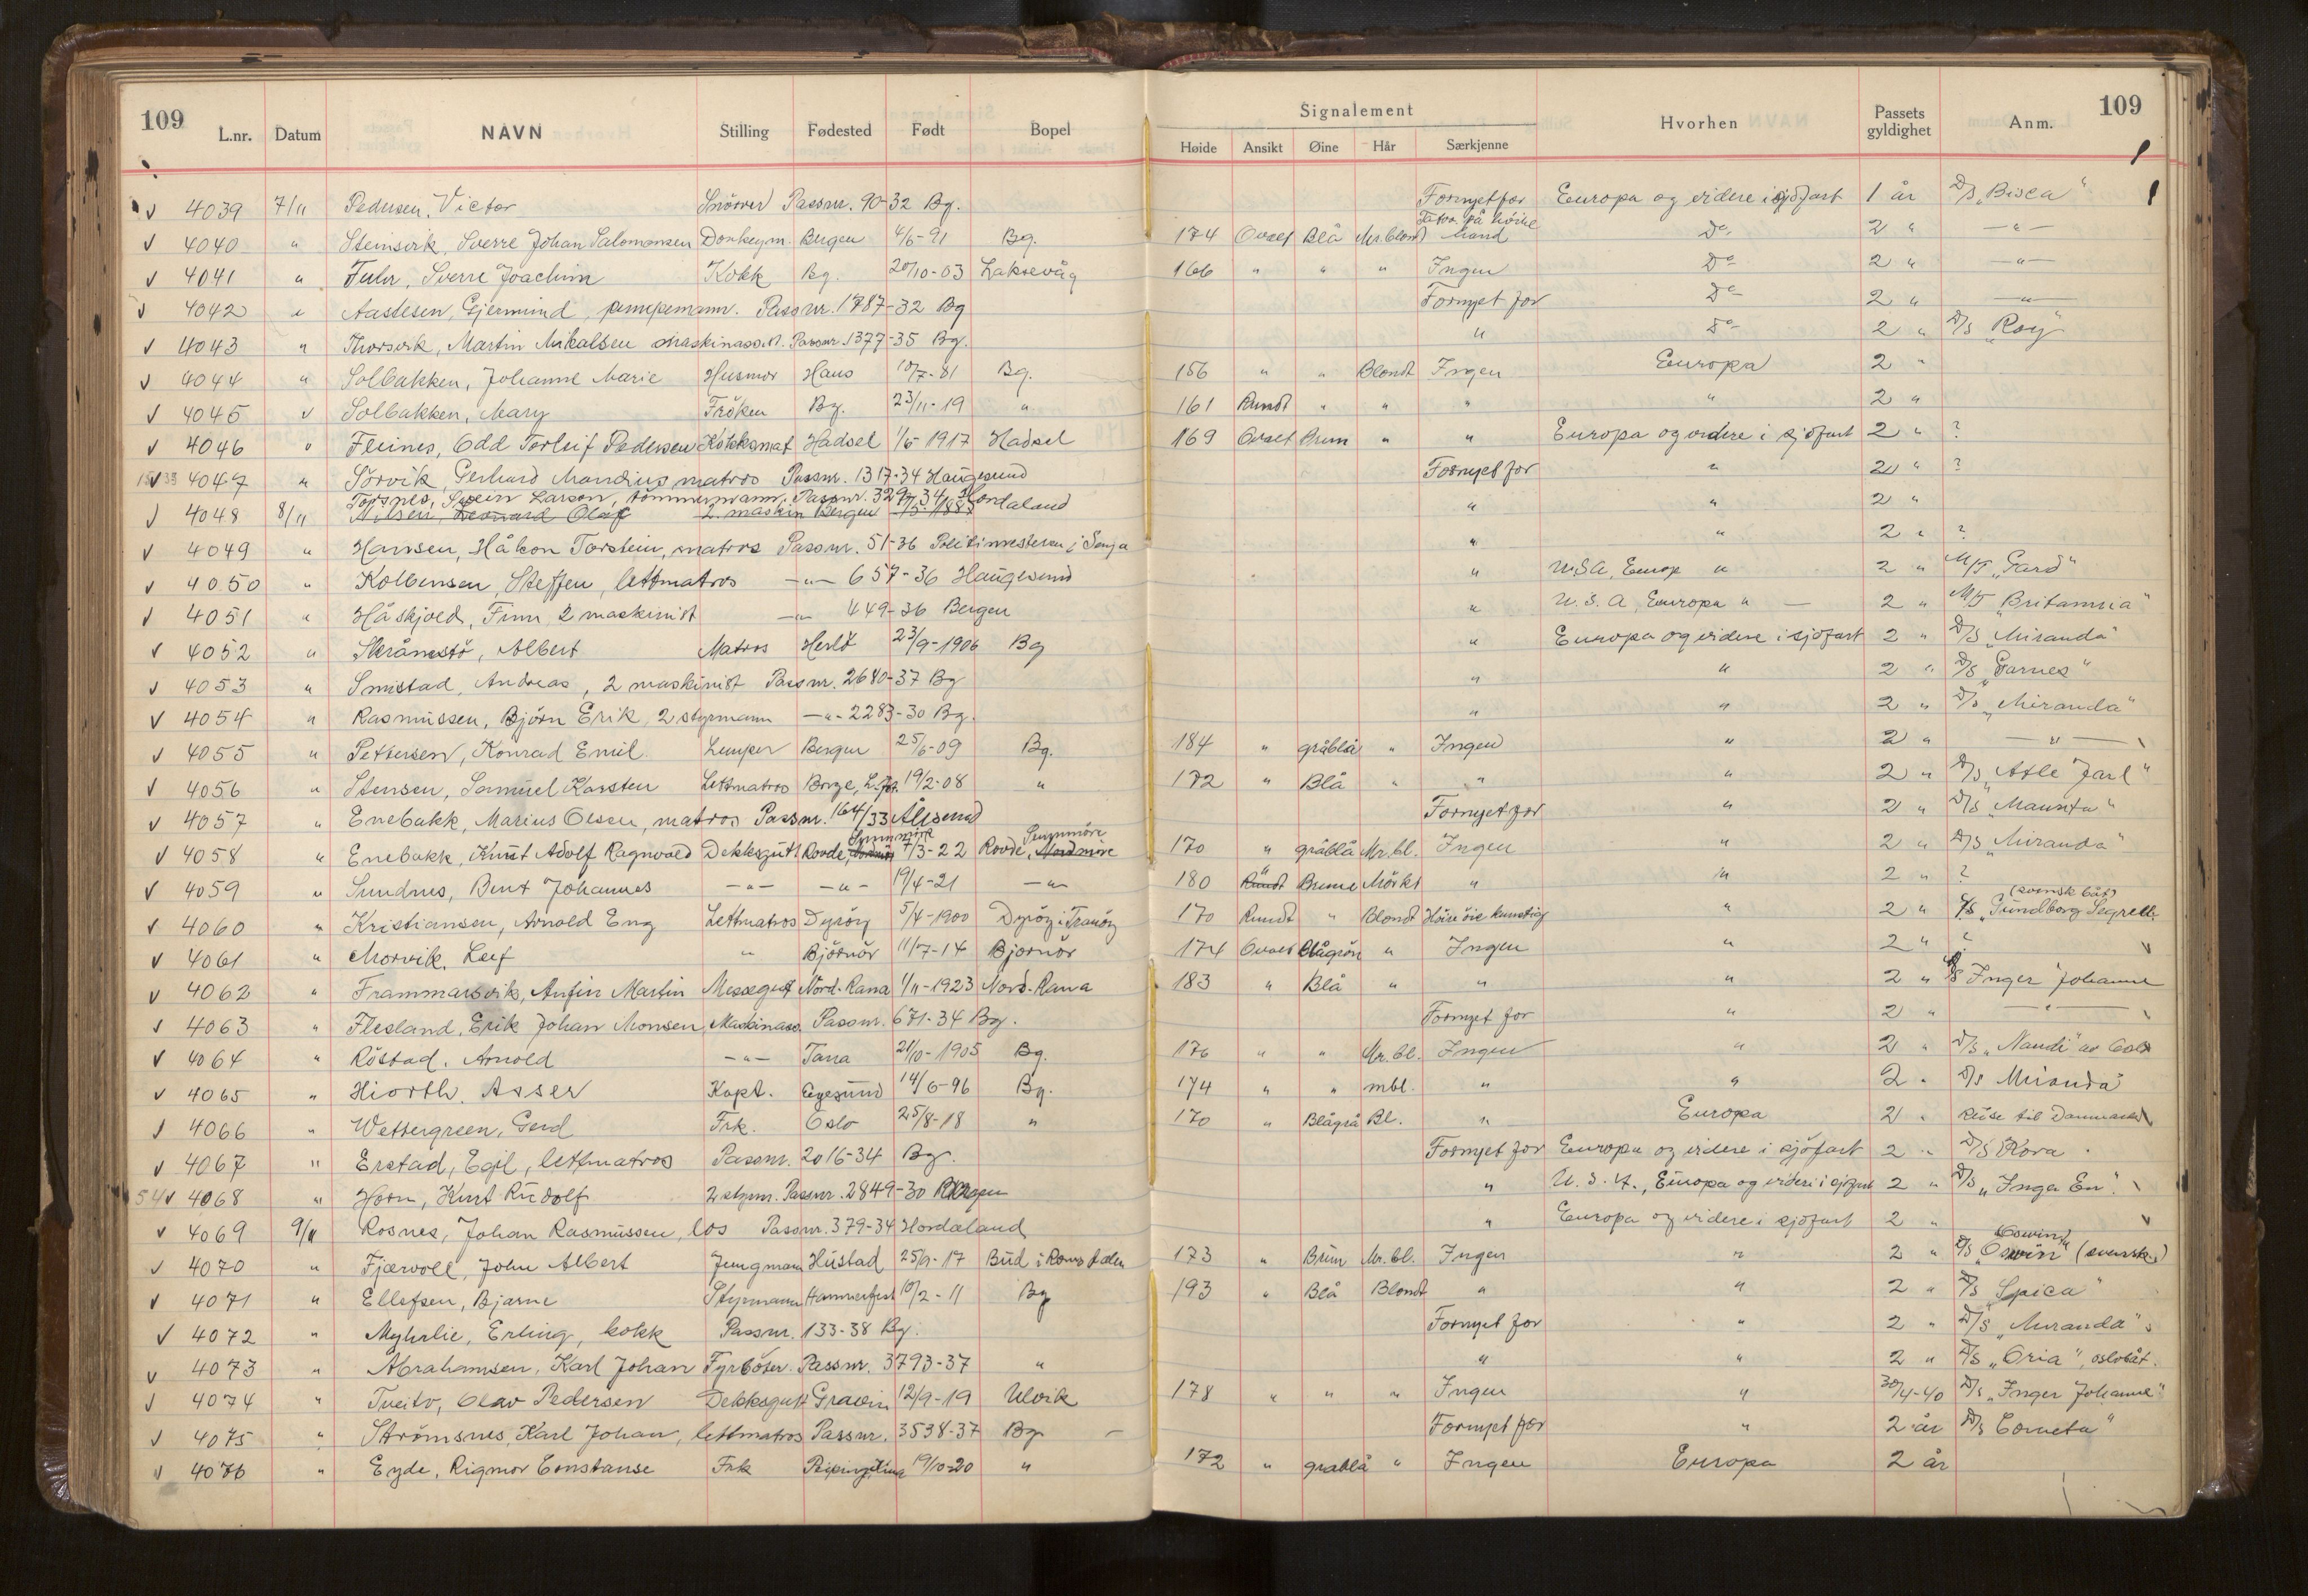 109 109
Signalement
L.nr. Datum NAVN Stilling Fødested Født Bopel Høide Ansikt Øine Hår Særkjenne Hvorhen Passets gyldighet Anm.
v 4039 7/11 Pedersen, Victor Passnr. 90-32 Bg. Fornyet for Europa og videre i sjöfart 1 år D/S „Bisca"
v 4040 " Steinsvik, Sverre Johan Salomonsen Donkeym. Bergen 4/6-91 Bg. 174 Ovalt Blå Mr.blond Tatov. på höire hånd Do 2 " -"-
v 4041 " Fuhr, Sverre Joachim Kokk Bg. 20/10-03 Laksevåg 166 " " " Ingen Do 2 " -"-
v 4042 " Aastesen, Gjermund, pumpemann. Passnr. 1787-32 Bg Fornyet for Do 2 " -"-
v 4043 " Thorsvik, Martin Mikalsen maskinasst. Passnr. 1377-35 Bg. " Do 2 " D/S „Roy"
v 4044 " Solbakken, Johanne Marie Husmor Haus 10/7-81 Bg. 156 " " Blondt Ingen Europa 2 "
v 4045 v Solbakken, Mary Fröken Bg. 23/11-19 " 161 Rundt " " " " 2 "
v 4046 " Fleines, Odd Torleif Pedersen Kokksmat Hadsel 1/5 1917 Hadsel 169 Ovalt Brun " " Europa og videre i sjöfart 2 " ?
v 4047 " Sörvik, Gerhard Mandius matros Passnr. 1317-34 Haugesund Fornyet for " 2 " ?
Torsnes, Svein Larson, tömmermann, Passnr. 329-34 Hordaland
v 4048 8/11 Nilsen, Leonard Olaf 2. maskin Bergen " " 2 "
v 4049 " Hansen, Håkon Torstein, matros Passnr. 51-36 Politimesteren i Senja " " 2 " ?
v 4050 " Kolbensen, Steffen, lettmatros -"- 657-36 Haugesund " U.S.A, Europ " 2 " M/T „Gard"
v 4051 " Håskjold, Finn, 2 maskinist -"- 449-36 Bergen " U.S.A, Europa " — 2 " M/T „Britannia"
v 4052 " Skråmestö, Albert Matros Herlö 23/9-1906 Bg " Europa og videre i sjöfart 2 " D/S „Miranda"
v 4053 " Smistad, Andreas, 2 maskinist Passnr. 2680-37 Bg " " 2 " D/S „Garnes"
v 4054 " Rasmussen, Björn Erik, 2 styrmann -"- 2283-30 Bg. " " 2 " D/S „Miranda"
v 4055 " Pettersen, Konrad Emil Lemper Bergen 25/6-09 Bg. 184 " gråblå " Ingen " 2 " -"-
v 4056 " Stensen, Samuel Karsten Lettmatros Borge, L.fot. 19/2-08 " 172 " Blå " " " 2 " D/S „Atle Jarl"
v 4057 " Enebakk, Marius Olsen, matros Passnr. 164/33 Ålesund Fornyet for " 2 " D/S „Maurita"
v 4058 " Enebakk, Knut Adolf Ragnvald Dekksgutt Rovde, Sunnmöre 7/3-22 Rovde, Sunnmöre Nordmöre 170 " gråblå Mr.bl. Ingen " 2 " D/S „Miranda"
v 4059 " Sundnes, Bent Johannes -"- -"- 19/4-21 -"- 180 Rundt " Brune Mörkt " " 2 " ?
v 4060 " Kristiansen, Arnold Eng Lettmatros Dyröy 5/4-1900 Dyröy i Tranöy 170 Rundt " Blondt Höire öie kunstig " 2 " (svensk båt) „Gundborg Segrell"
v 4061 " Morvik, Leif " Björnör 11/7-14 Bjornör 174 Ovalt Blågrön " Ingen " 2 " ?
v 4062 " Frammarsvik, Anfin Martin Messegut Nord-Rana 1/11-1923 Nord-Rana 183 " Blå " " " 2 " D/S Inger Johanne
v 4063 " Flesland, Erik Johan Monsen, Maskinass. Passnr. 671-34 Bg. Fornyet for " 2 " -"-
v 4064 " Röstad, Arnold -"- Tana 21/10-1905 Bg. 176 " " Mr.bl. Ingen " 2 " D/S „Nandi" av Oslo
v 4065 " Hiorth, Asser Kapt. Egesund 14/6-96 Bg. 174 " " mbl. " " 2 " D/S Miranda"
v 4066 " Wettergreen, Gerd Frk. Oslo 25/8-18 " 170 " Blågrå Bl. " Europa 2 " Reise til Danmark
v 4067 " Erstad, Egil, lettmatros Passnr. 2016-34 Bg. Fornyet for Europa og videre i sjöfart 2 " D/S Kora
v 4068 " Horn, Kurt Rudolf 2 styrm. Passnr. 2849-30 Bergen " U.S.A., Europa og videre i sjöfart 2 " D/S „Inga En".
v 4069 9/11 Rosnes, Johan Rasmussen, los Passnr. 379-34 Hordaland " Europa og videre i sjöfart 2 "
v 4070 " Fjærvoll, John Albert Jungmann Hustad 25/9-17 Bud i Romsdalen 173 " Brun Mr.bl. Ingen " 2 " D/S „Oswin" Oswin (svensk)
v 4071 " Ellefsen, Bjarne Styrmann Hammerfest 10/2-11 Bg 193 " Blå Blondt " " 2 " D/S „Spica"
v 4072 " Myhrlie, Erling, kokk Passnr. 133-38 Bg. Fornyet for " 2 " D/S „Miranda"
v 4073 " Abrahamsen, Karl Johan Fyrböter. Passnr. 3793-37 " " " 2 " D/S „Oria", oslobåt.
v 4074 " Tveito, Olav Pedersen Dekksgutt Graven 12/9-19 Ulvik 178 " " " Ingen " 30/4-40 D/S „Inger Johanne"
v 4075 " Strömsnes, Karl Johan, lettmatros Passnr. 3538-37 Bg — Fornyet for " 2 år D/S Corneta"
v 4076 " Eyde, Rigmor Constanse Frk 19/10-20 " 172 " gråblå " Ingen Europa 2 år